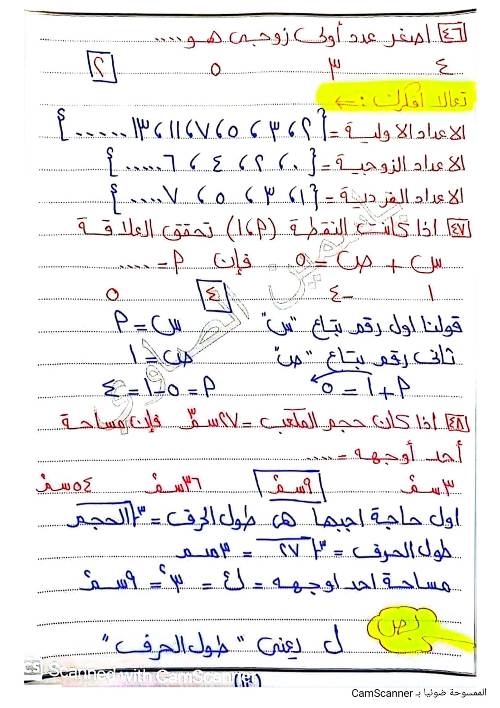 ٤٦ اصغر عدد أولى زوجى هو ....
٤ ٣ ٥ ٢
تعالا افكرك :-
الاعداد الاولية = { ٢ ، ٣ ، ٥ ، ٧ ، ١١ ، ١٣ ..... }
الاعداد الزوجية = { ٠ ، ٢ ، ٤ ، ٦ ..... }
الاعداد الفردية = { ١ ، ٣ ، ٥ ، ٧ .... }
٤٧ اذا كانت النقطة (P ، ١) تحقق العلاقة
س + ص = ٥ فإن P = ....
١ -٤ ٤ ٥
قولنا اول رقم بتاع "س" س = P
ثانى رقم بتاع "ص" ص = ١
P + ١ = ٥ P = ٥ - ١ = ٤
٤٨ اذا كان حجم المكعب = ٢٧ سم٣ فإن مساحة
أحد أوجهه = ....
٣ سم٢ ٩ سم٢ ٣٦ سم٢ ٥٤ سم٢
اول حاجة اجيبها هى طول الحرف = ∛الحجم
طول الحرف = ∛٢٧ = ٣ سم
مساحة احد اوجهه = ل٢ = ٣٢ = ٩ سم٢
بص
ل يعنى "طول الحرف"
CS Scanned with CamScanner
الممسوحة ضوئيا بـ CamScanner